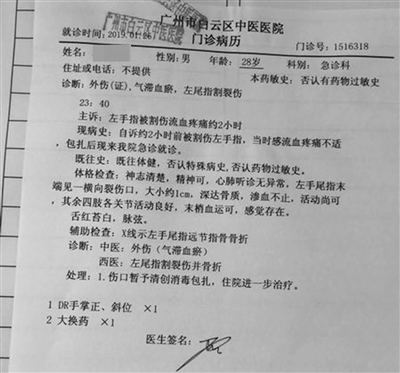 广州市白云区中医医院
广州市白云区中医医院
门诊病历
就诊时间：2019.01.26
门诊号：1516318
姓名： 性别：男 年龄：28岁 科别：急诊科
住址或电话：不提供
本药敏史：否认有药物过敏史
诊断：外伤(证),气滞血瘀，左尾指割裂伤
23：40
主诉：左手指被割伤流血疼痛约2小时
现病史：自诉约2小时前被割伤左手指，当时感流血疼痛不适
，包扎后现来我院急诊就诊。
既往史：既往体健，否认特殊病史，否认药物过敏史。
体格检查：神志清楚，精神可，心肺听诊无异常，左手尾指末
端见一横向裂伤口，大小约1cm，深达骨质，渗血不止，活动尚可
，其余四肢各关节活动良好，末梢血运可，感觉存在。
舌红苔白，脉弦。
辅助检查：X线示左手尾指远节指骨骨折
诊断：中医：外伤（气滞血瘀）
西医：左尾指割裂伤并骨折
处理：1.伤口暂予清创消毒包扎，住院进一步治疗。
1 DR手掌正、斜位 ×1
2 大换药 ×1
医生签名：